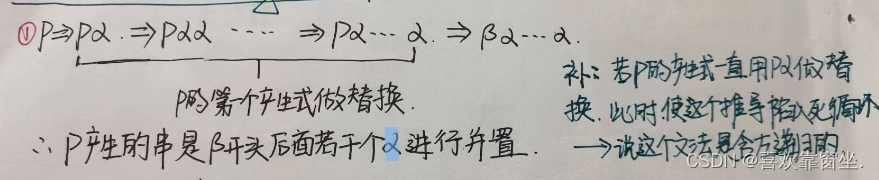 ① P⇒Pα.⇒Pαα ····· ⇒Pα···α.⇒βα···α.
P的第一个产生式做替换.
∴P产生的串是β开头后面若干个α进行并置.
补:若P的产生式一直用Pα做替
换.此时使这个推导陷入死循环
→说这个文法是含左递归的
CSDN @喜欢靠窗坐.